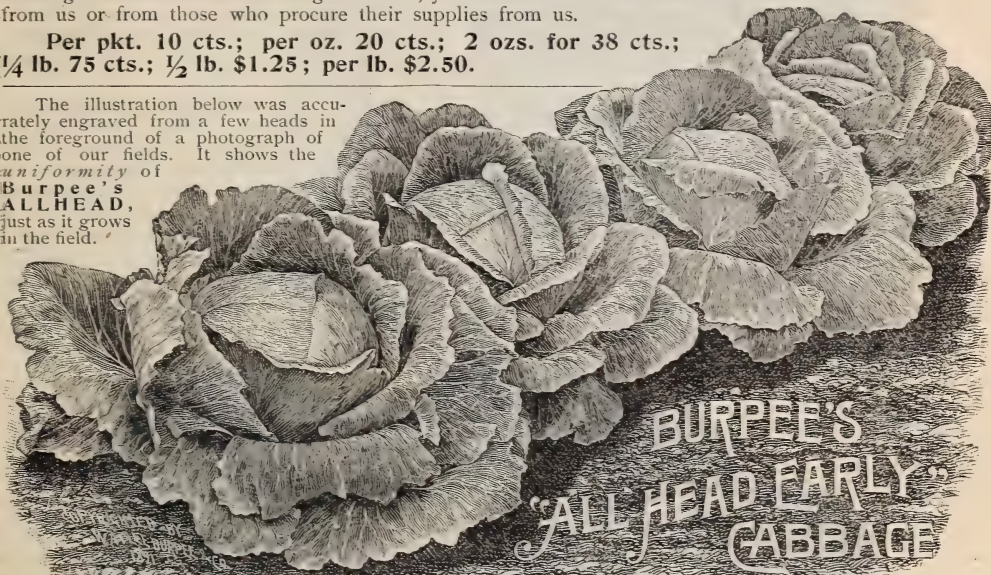 from us or from those who procure their supplies from us.
Per pkt. 10 cts.; per oz. 20 cts.; 2 ozs. for 38 cts.;
¼ lb. 75 cts.; ½ lb. $1.25; per lb. $2.50.
The illustration below was accu-
rately engraved from a few heads in
the foreground of a photograph of
one of our fields. It shows the
uniformity of
Burpee's
ALLHEAD,
just as it grows
in the field.
BURPEE'S
"ALL HEAD EARLY"
CABBAGE
COPYRIGHTED BY
W. ATLEE BURPEE
CO.